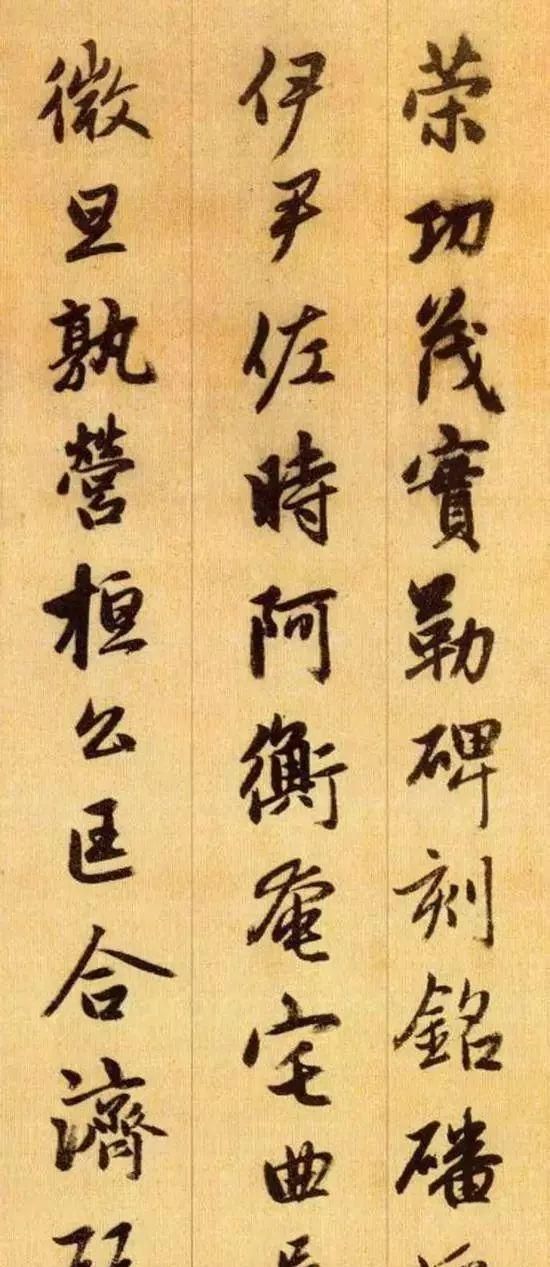 荣功茂實勒碑刻銘磻
伊尹佐時阿衡奄宅曲
微旦孰營桓公匡合濟